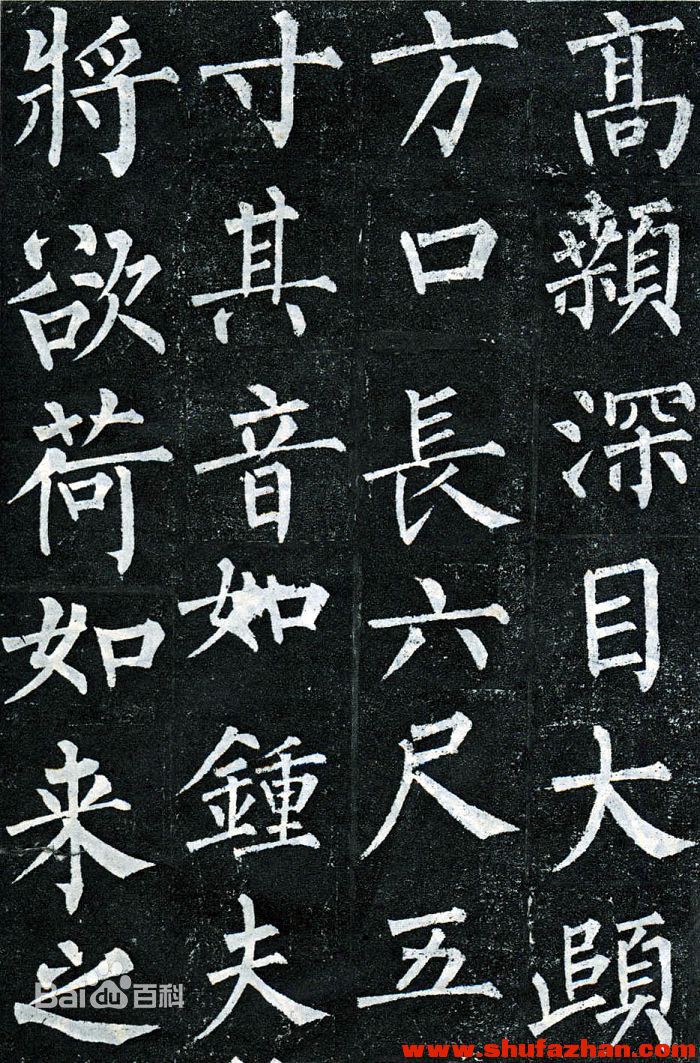 髙顙深目大頤
方口長六尺五
寸其音如鍾夫
將欲荷如来之
Bai百科
www.shufazhan.com